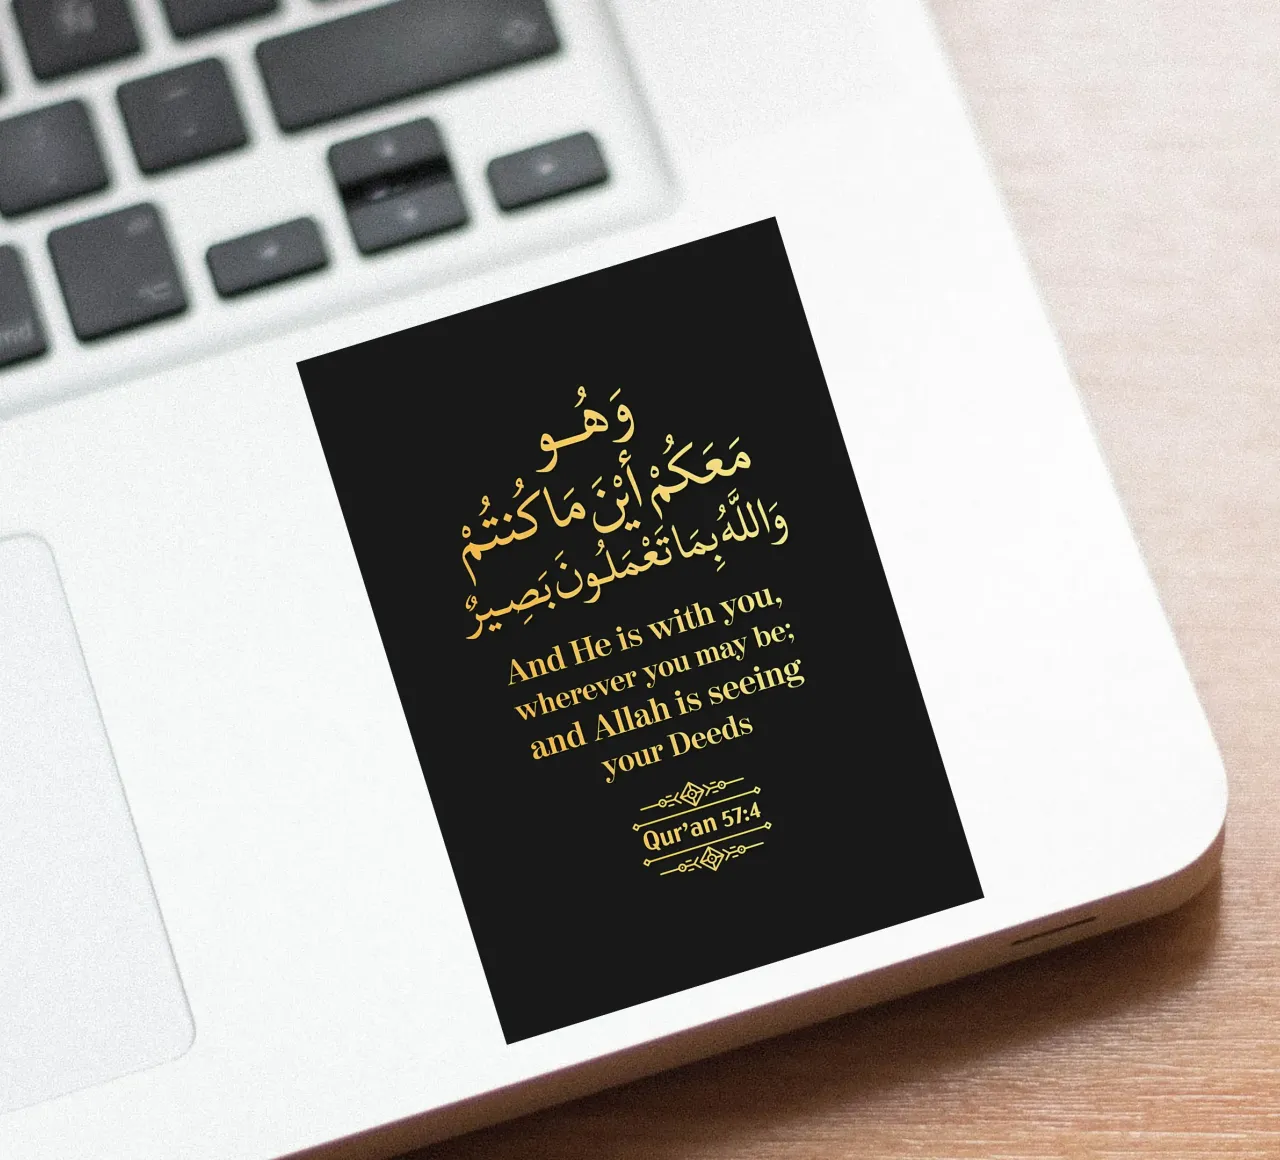 وَهُـو
مَعَكُمْ أَيْنَ مَا كُنتُمْ
وَاللَّهُ بِمَا تَعْمَلُونَ بَصِيرٌ
And He is with you,
wherever you may be;
and Allah is seeing
your Deeds
Qur'an 57:4